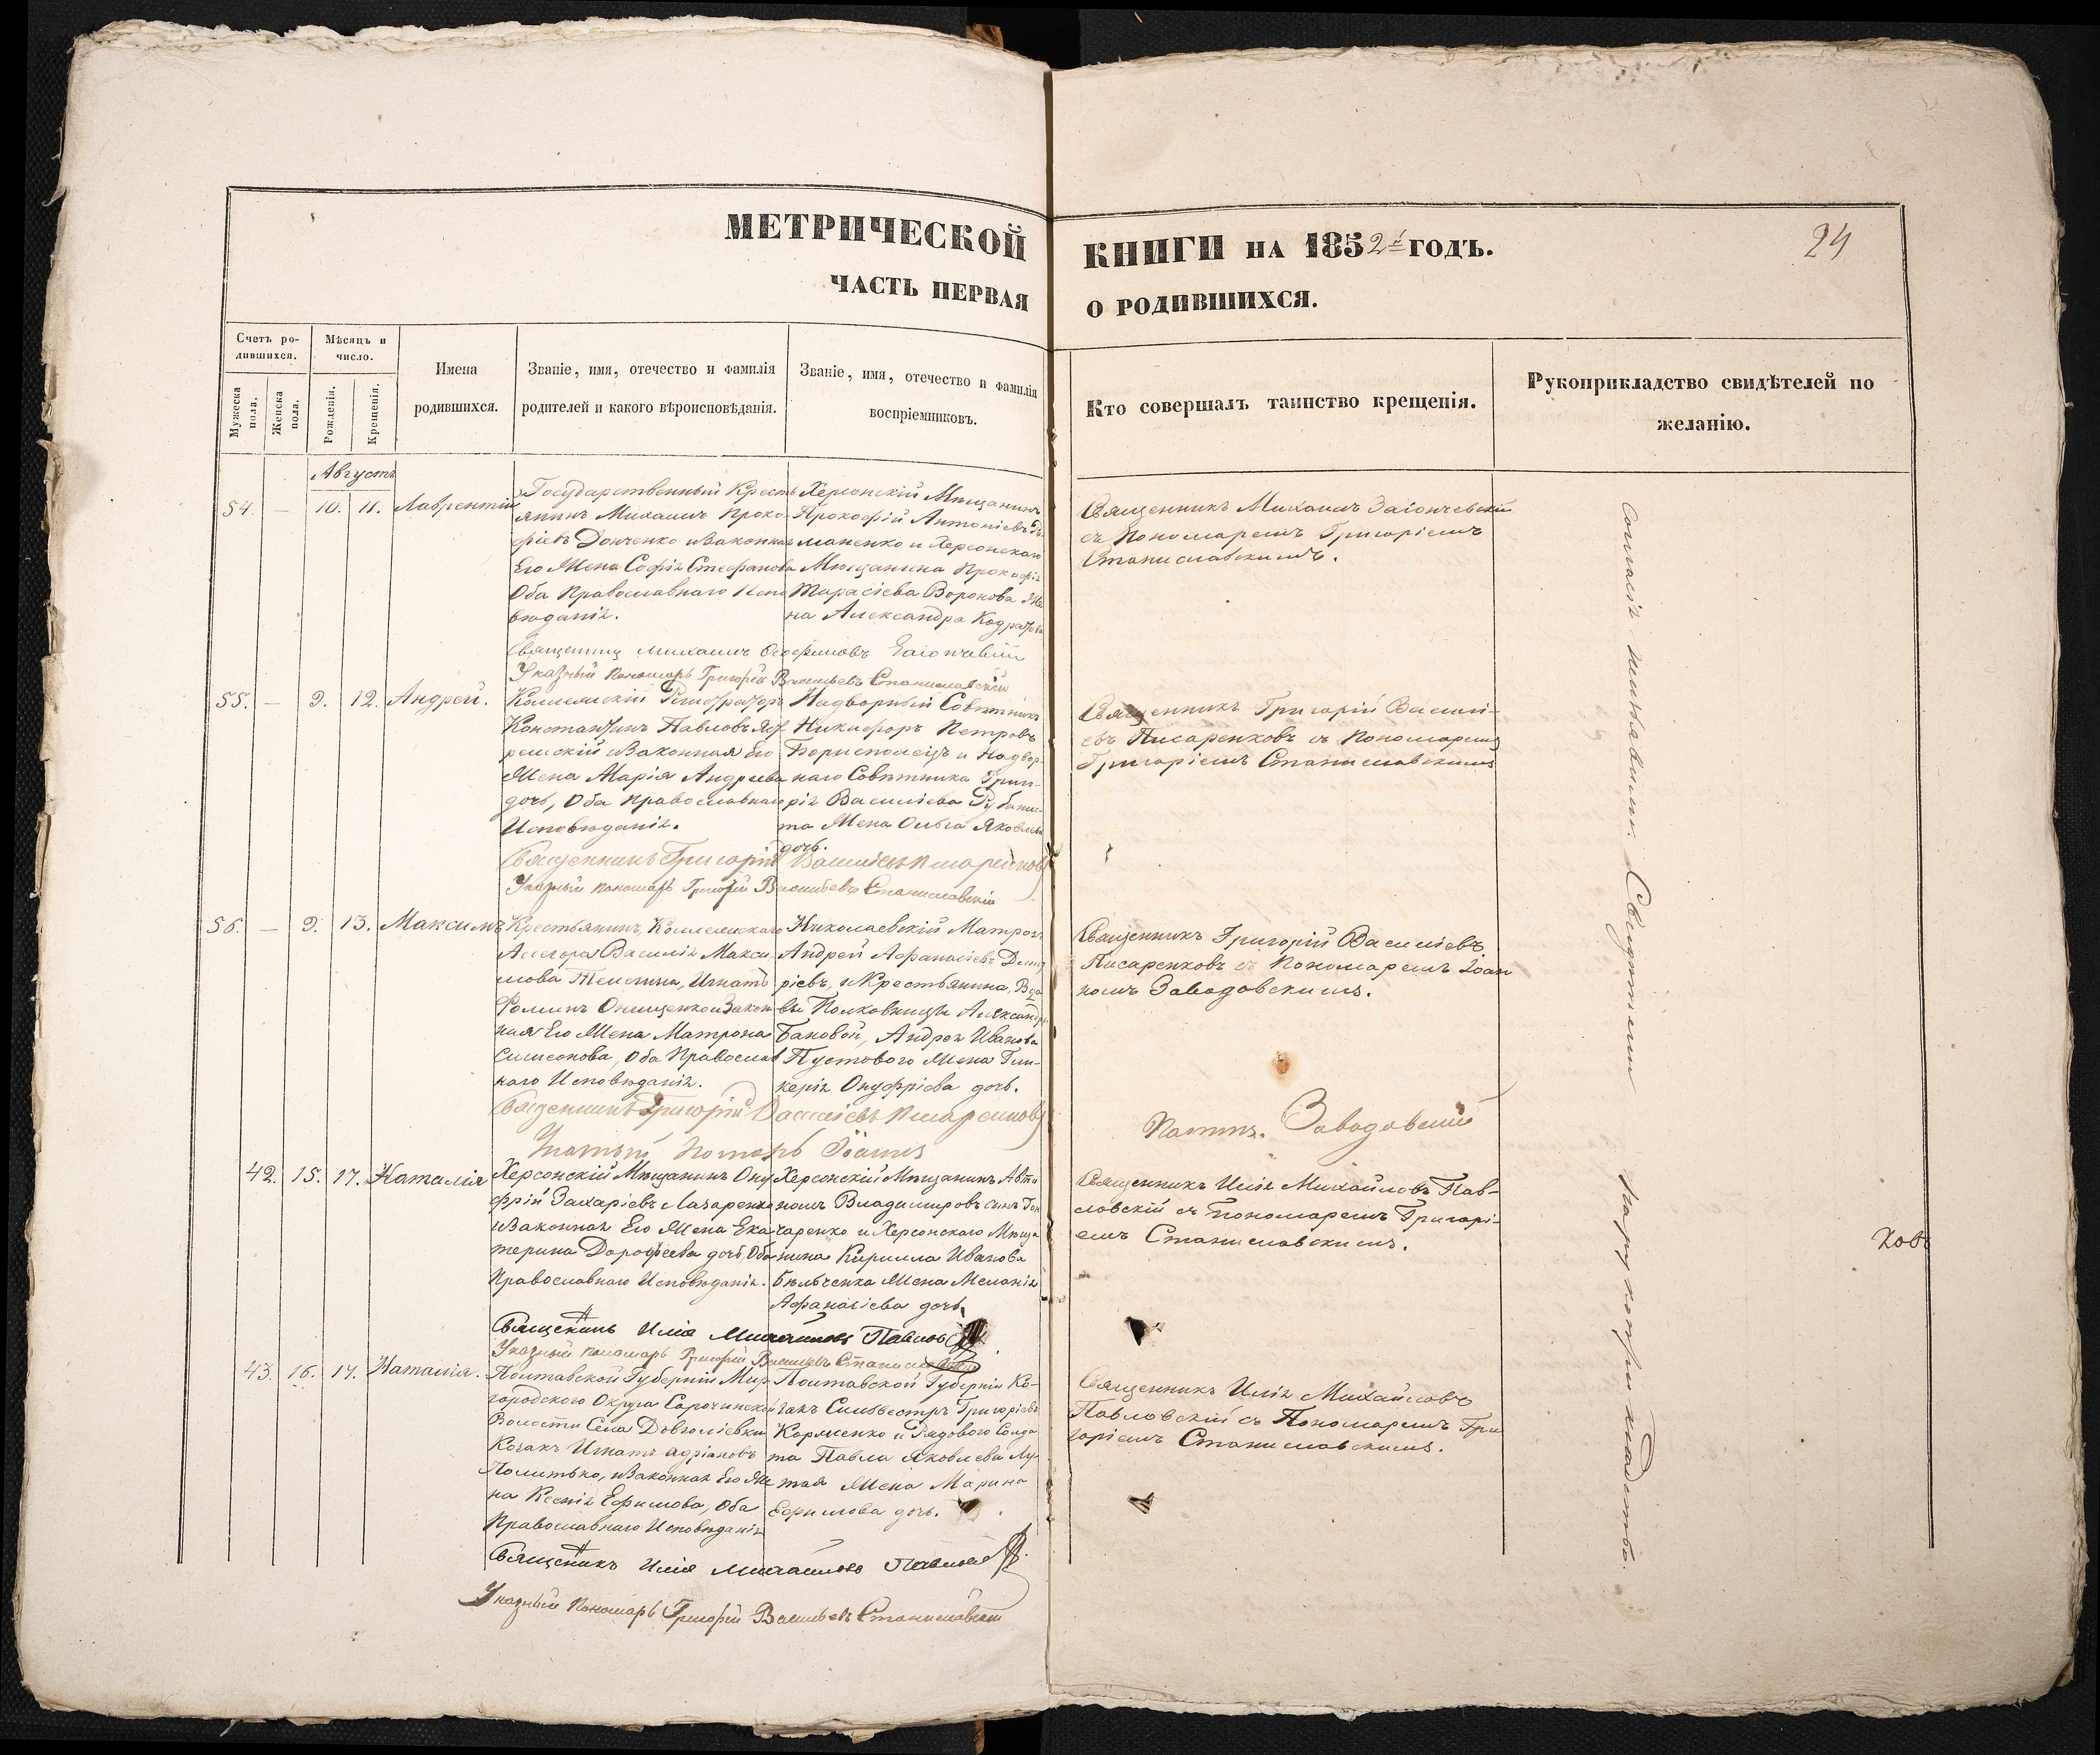 МЕТРИЧЕСКОЙ
ЧАСТЬ ПЕРВАЯ
КНИГИ НА 1852й ГОДЪ.
О РОДИВШИХСЯ.
24
Счетъ ро-
дившихся.
Мужеска
пола.
Женска
пола.
Мѣсяцъ и
число.
Рожденія.
Крещенія.
Имена
родившихся.
Званіе, имя, отечество и фамилія
родителей и какого вѣроисповѣданія.
Званіе, имя, отечество и фамилія
воспріемниковъ.
Кто совершалъ таинство крещенія.
Рукоприкладство свидѣтелей по
желанію.
Августъ
54. — 10. 11. Лаврентій
Государственный Кресть
янинъ Михаилъ Проко-
фіевъ Донченко и Законная
Его Жена Софія Стефанова
Оба Православнаго Испо
вѣданія.
Херсонскій Мѣщанинъ
Прокофій Антоніевъ
маненко и Херсонскаго
Мѣщанина Прокофія
Тарасіева Воронова Же
на Александра
Священникъ Михаилъ Заіончевскій
съ Пономаремъ Григоріемъ
Станиславскимъ.
Священникъ Михаилъ
Указный Пономарь Григорій Васильевъ Станиславскій
55. — 9. 12. Андрей.
Коллежскій Регистраторъ
Константинъ Павловъ
ремскій и Законная Его
Жена Марія Андреева
дочь, Оба Православнаго
Исповѣданія.
Надворный Совѣтникъ
Никифоръ Петровъ
Бориспо и Надвор
наго Совѣтника Григо-
рія Василіева
та Жена Ольга Яковлева
дочь.
Священникъ Григорій Василі-
евъ Писаренковъ съ Пономаремъ
Григоріемъ Станиславскимъ
Священникъ Григорій Василіевъ Писаренковъ
Указный Пономарь Григорій Васильевъ Станиславскій
56. — 9. 13. Максимъ
Крестьянинъ, Коллежскаго
Асессора Василія Макси
мова Игнатъ
Фоминъ Онищенко и Закон
ная Его Жена Матрона
Симеонова, Оба Православ
наго Исповѣданія.
Николаевскій Матрозъ
Андрей Афанасіевъ Димит
ріевъ, и Крестьянина, Вдо
вы Полковницы Александры
Баковой, Андрея Иванова
Пустового Жена Гли-
керія Онуфріева дочь.
Священникъ Григорій Василіевъ
Писаренковъ съ Пономаремъ Іоан
номъ Заводовскимъ.
Священникъ Григорій Василіевъ Писаренковъ
Іоаннъ
Заводовскій
42. 15. 17. Наталія
Херсонскій Мѣщанинъ Ону
фрій Захаріевъ Лазаренко
и Законная Его Жена Ека
терина Дорофеева дочь, Оба
Православнаго Исповѣданія.
Херсонскій Мѣщанинъ Авто
номъ Владимировъ сынъ Гон
чаренко и Херсонскаго Мѣща
нина Кирилла Иванова
Бѣльченка Жена Меланія
Афанасіева дочь.
Священникъ Илія Михайловъ Пав-
ловскій съ Пономаремъ Григорі-
емъ Станиславскимъ.
Священникъ Илія Михайловъ Павлов
Указный Пономарь Григорій Васильевъ Станиславскій
43. 16. 17. Наталія.
Полтавской Губерніи Мир
городского Округа Сорочинской
Волости Села Довголіевки
Козакъ Игнатъ Адріановъ
Политько, и Законная Его Же
на Ксенія Ефимова, Оба
Православнаго Исповѣданія
Полтавской Губерніи Ко-
закъ Сильвестръ Григоріевъ
Корженко и Рядового Солда
та Павла Яковлева Лу-
тая Жена Марина
Ефимова дочь.
Священникъ Илія Михайловъ
Павловскій съ Пономаремъ Гри
горіемъ Станиславскимъ.
Священникъ Илія Михайловъ Павловскій
Указный Пономарь Григорій Васильевъ Станиславскій
Свидѣтели
ховъ